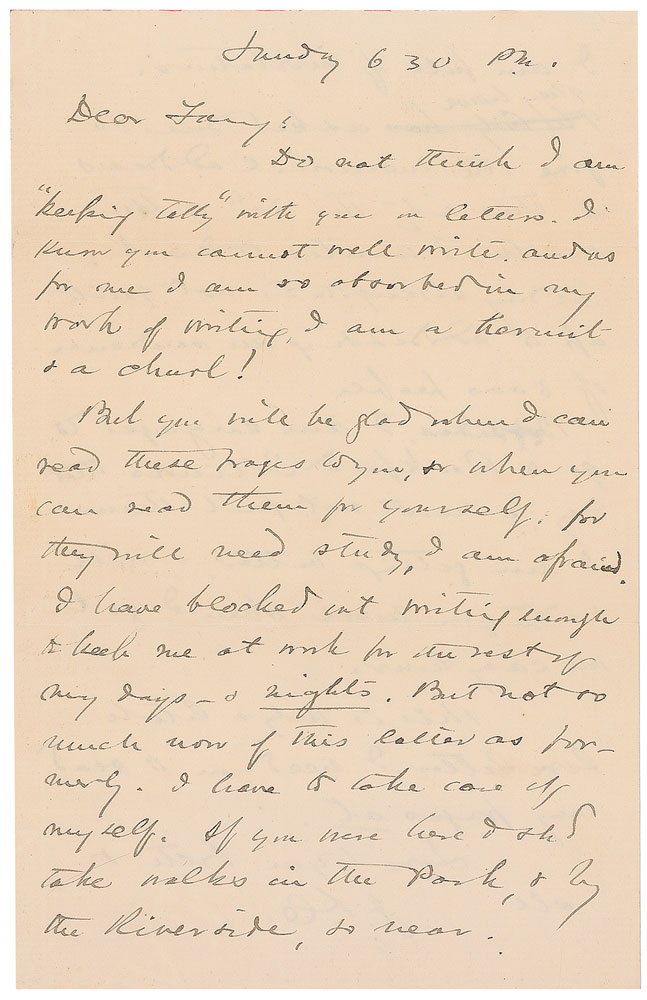 Sunday 6 30 P.M.
Dear Fany!
Do not think I am
"keeping tally" with you on letters. I
know you cannot well write. and as
for me I am so absorbed in my
work of writing, I am a hermit
& a churl!
But you will be glad when I can
read these pages to you, or when you
can read them for yourself; for
they will need study, I am afraid.
I have blocked out writing enough
to keep me at work for the rest of
my days – & nights. But not so
much now of this latter as for-
merly. I have to take care of
myself. If you were here I shd
take walks in the Park, & by
the Riverside, so near.